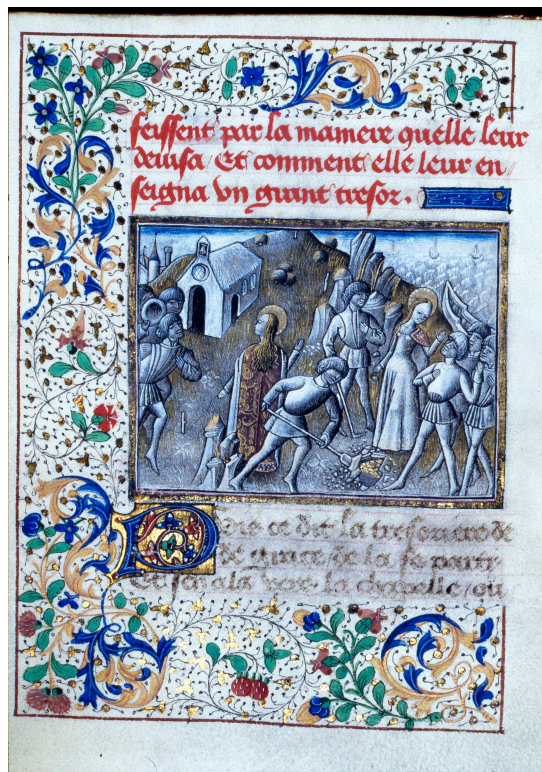 feissent par la maniere quelle leur
deuisa / Et comment elle leur en //
seigna vn grant tresor .
Die ce dit la tresoriere de
de grace de la se party
Et sen ala vers la chapelle / ou